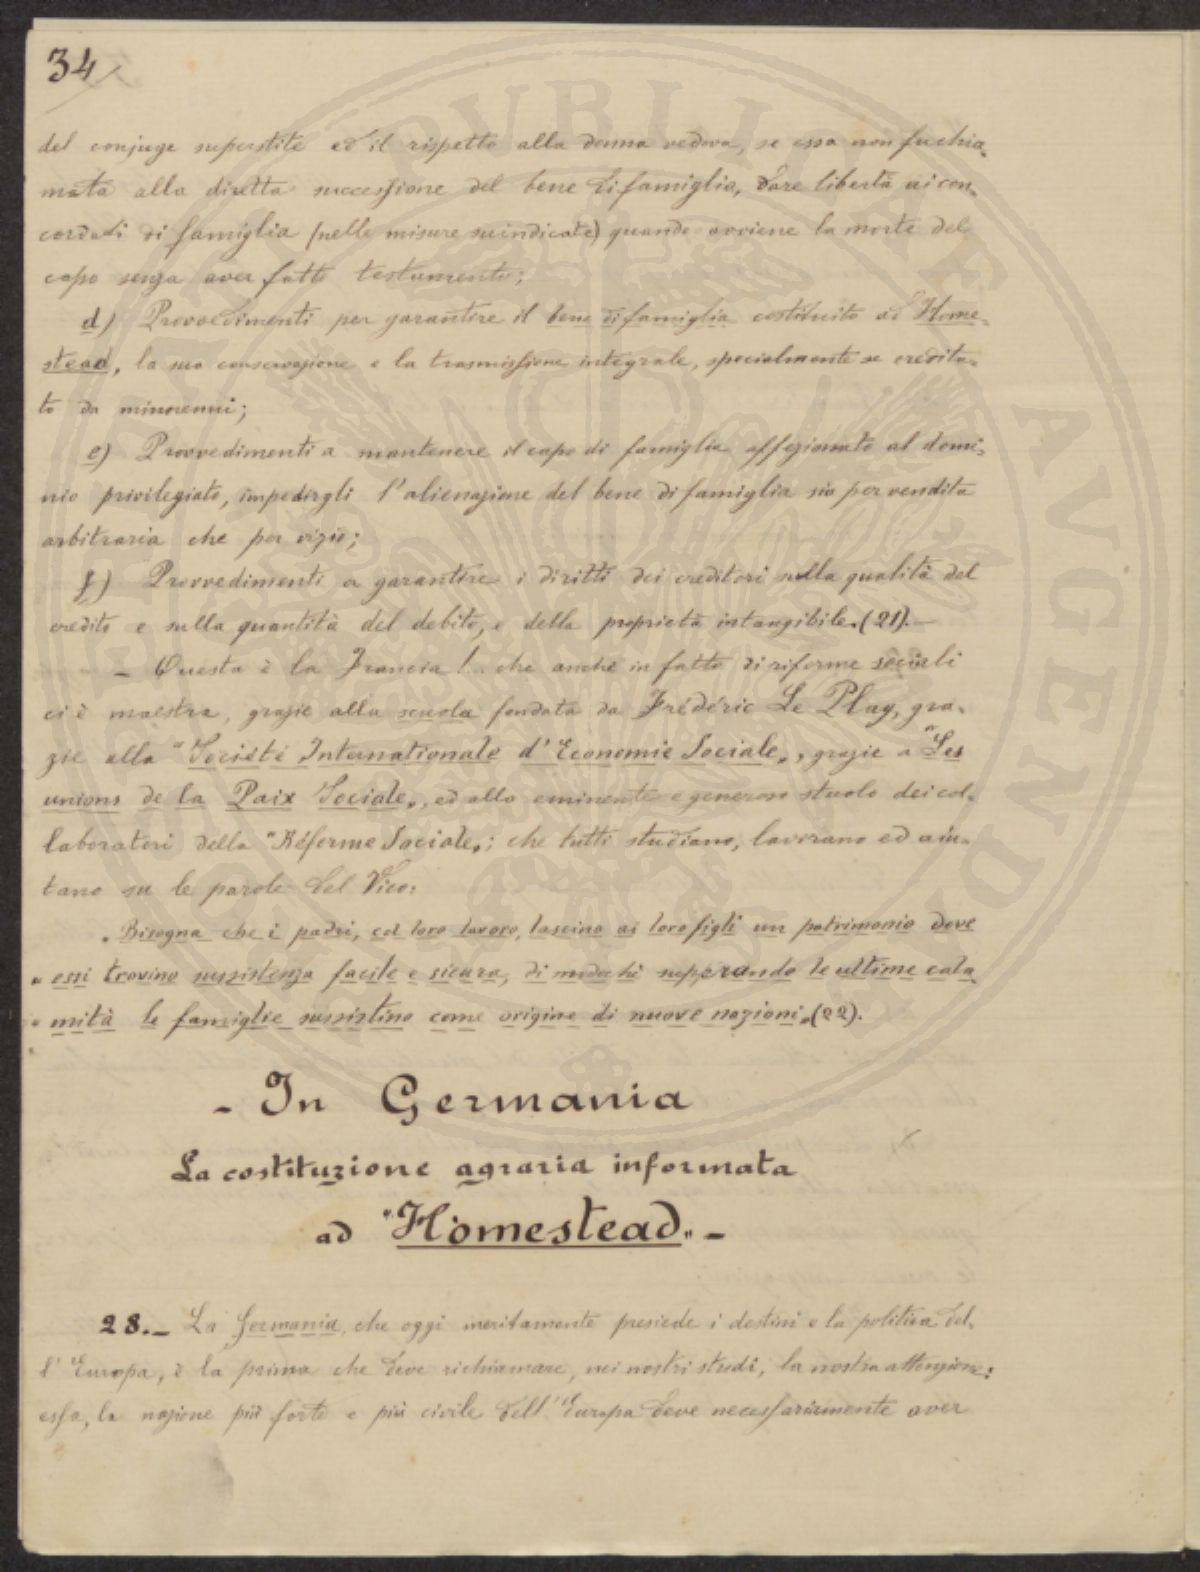 34
del conjuge superstite ed il rispetto alla donna vedova, se essa non fu chia-
mata alla diretta successione del bene di famiglia, dare libertà ai con-
cordati di famiglia (nelle misure suindicate) quando avviene la morte del
capo senza aver fatto testamento;
d) Provvedimenti per garantire il bene di famiglia costituito ad Home-
stead, la sua conservazione e la trasmissione integrale, specialmente se eredita-
to da minorenni;
e) Provvedimenti a mantenere il capo di famiglia affezionato al domi-
nio privilegiato, impedirgli l'alienazione del bene di famiglia sia per vendita
arbitraria che per vizio;
f) Provvedimenti a garantire i diritti dei creditori sulla qualità del
credito e sulla quantità del debito, e della proprietà intangibile. (21).—
— Questa è la Francia!.. che anche in fatto di riforme sociali
ci è maestra, grazie alla scuola fondata da Frédéric Le Play, gra-
zie alla "Société Internationale d'Economie Sociale", grazie a "Les
unions de la Paix Sociale", ed allo eminente e generoso stuolo dei col-
laboratori della "Réforme Sociale"; che tutti studiano, lavorano ed aiu-
tano su le parole del Vico:
"Bisogna che i padri, col loro lavoro, lascino ai loro figli un patrimonio dove
" essi trovino sussistenza facile e sicura, di modochè superando le ultime cala-
" mità le famiglie sussistino come origine di nuove nazioni" (22).
- In Germania
La costituzione agraria informata
ad "Homestead" -
28.— La Germania, che oggi meritamente presiede i destini e la politica del-
l'Europa, è la prima che deve richiamare, nei nostri studi, la nostra attenzione:
essa, la nazione più forte e più civile dell'Europa deve necessariamente aver
PUBLICAE AUGENDAE